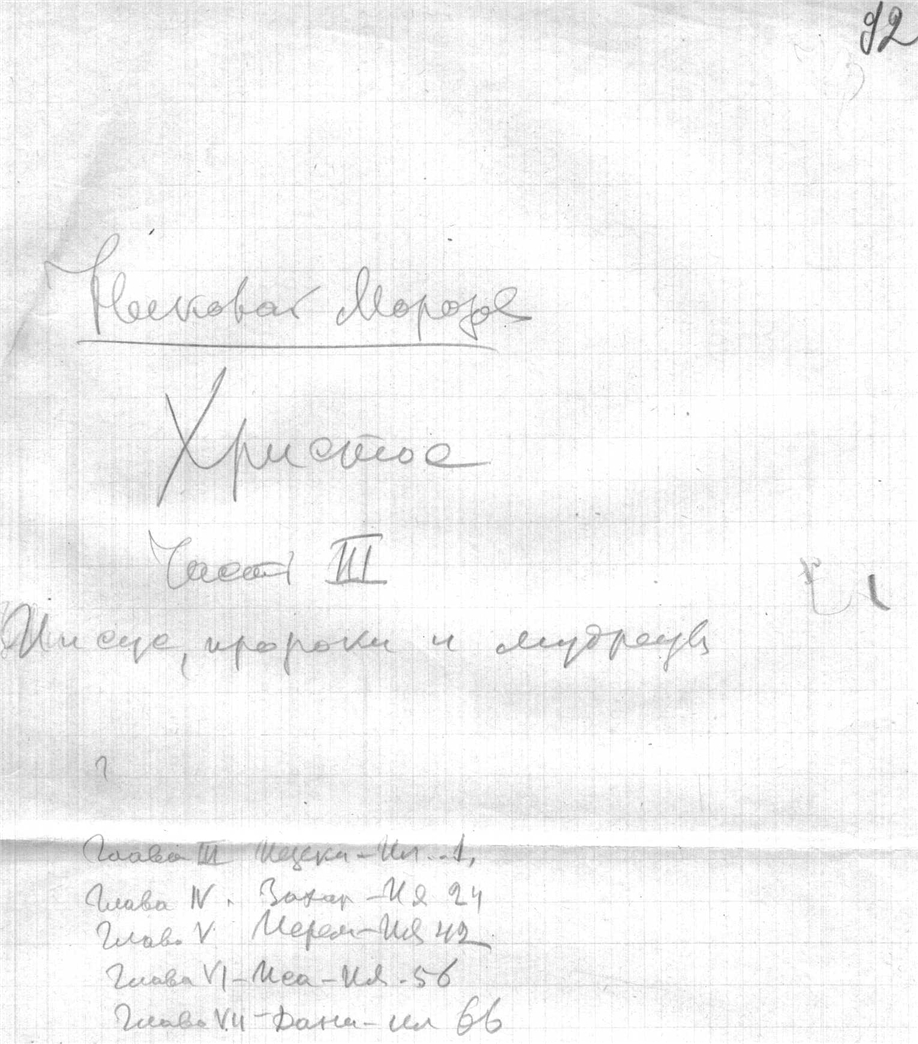 92
Николай Морозов
Христос
Часть III
Иисус, пророки и мудрецы
?
Глава III Иезеки-Ил. 1,
Глава IV. Захар-Ия 24
Глава V Иерем-Ия 42
Глава VI-Иса-Ия. 56
Глава VII-Дани-ил 66